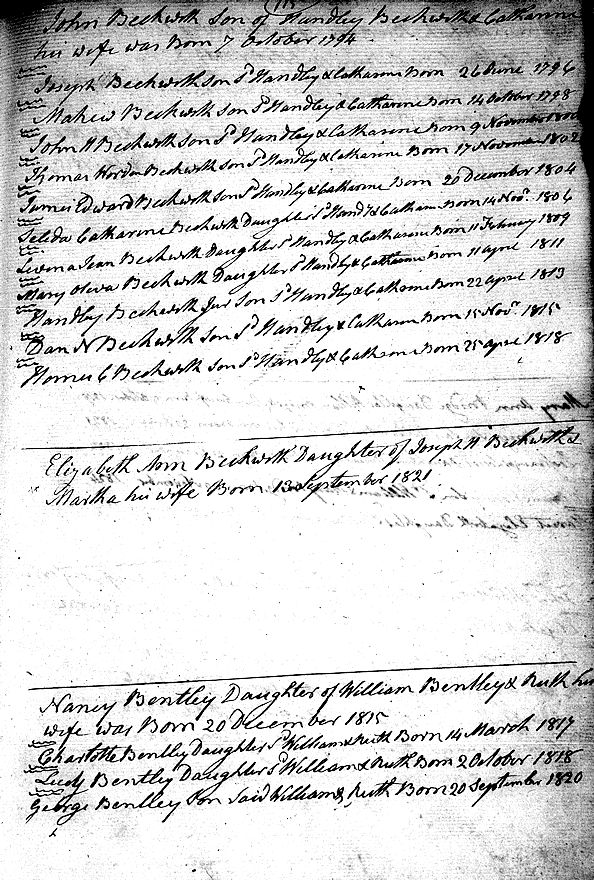 John Beckwith Son of Handley Beckwith & Catharine
his wife was Born 7 October 1794
Joseph Beckwith Son Sd Handley & Catharine Born 26 June 1796
Mahew Beckwith Son Sd Handley & Catharine Born 14 October 1798
John H Beckwith Son Sd Handley & Catharine Born 9 November 1800
Thomas Beckwith Son Sd Handley & Catharine Born 17 November 1802
James Edward Beckwith Son Sd Handley & Catharine Born 20 December 1804
Catharine Beckwith Daughter Sd Handy & Catharin Born 14 Novr. 1806
Levena Jean Beckwith Daughter Sd Handley & Catharine Born 11 February 1809
Mary Oliva Beckwith Daughter Sd Handley & Catharine Born 11 april 1811
Handley Beckwith Jur Son Sd Handley & Catharine Born 22 april 1813
Dan N Beckwith Son Sd Handley & Catharine Born 15 Novr 1815
Homer C Beckwith Son Sd Handley & Catharine Born 25 april 1818
Elizabeth Ann Beckwith Daughter of Joseph H Beckwith &
Martha his wife Born 13 September 1821
Nancy Bentley Daughter of William Bentley & Ruth his
wife was Born 20 December 1815
Charlotte Bentley Daughter Sd William & Ruth Born 14 March 1817
Lucy Bentley Daughter Sd William & Ruth Born 2 October 1818
George Bentley Son Said William & Ruth Born 20 September 1820